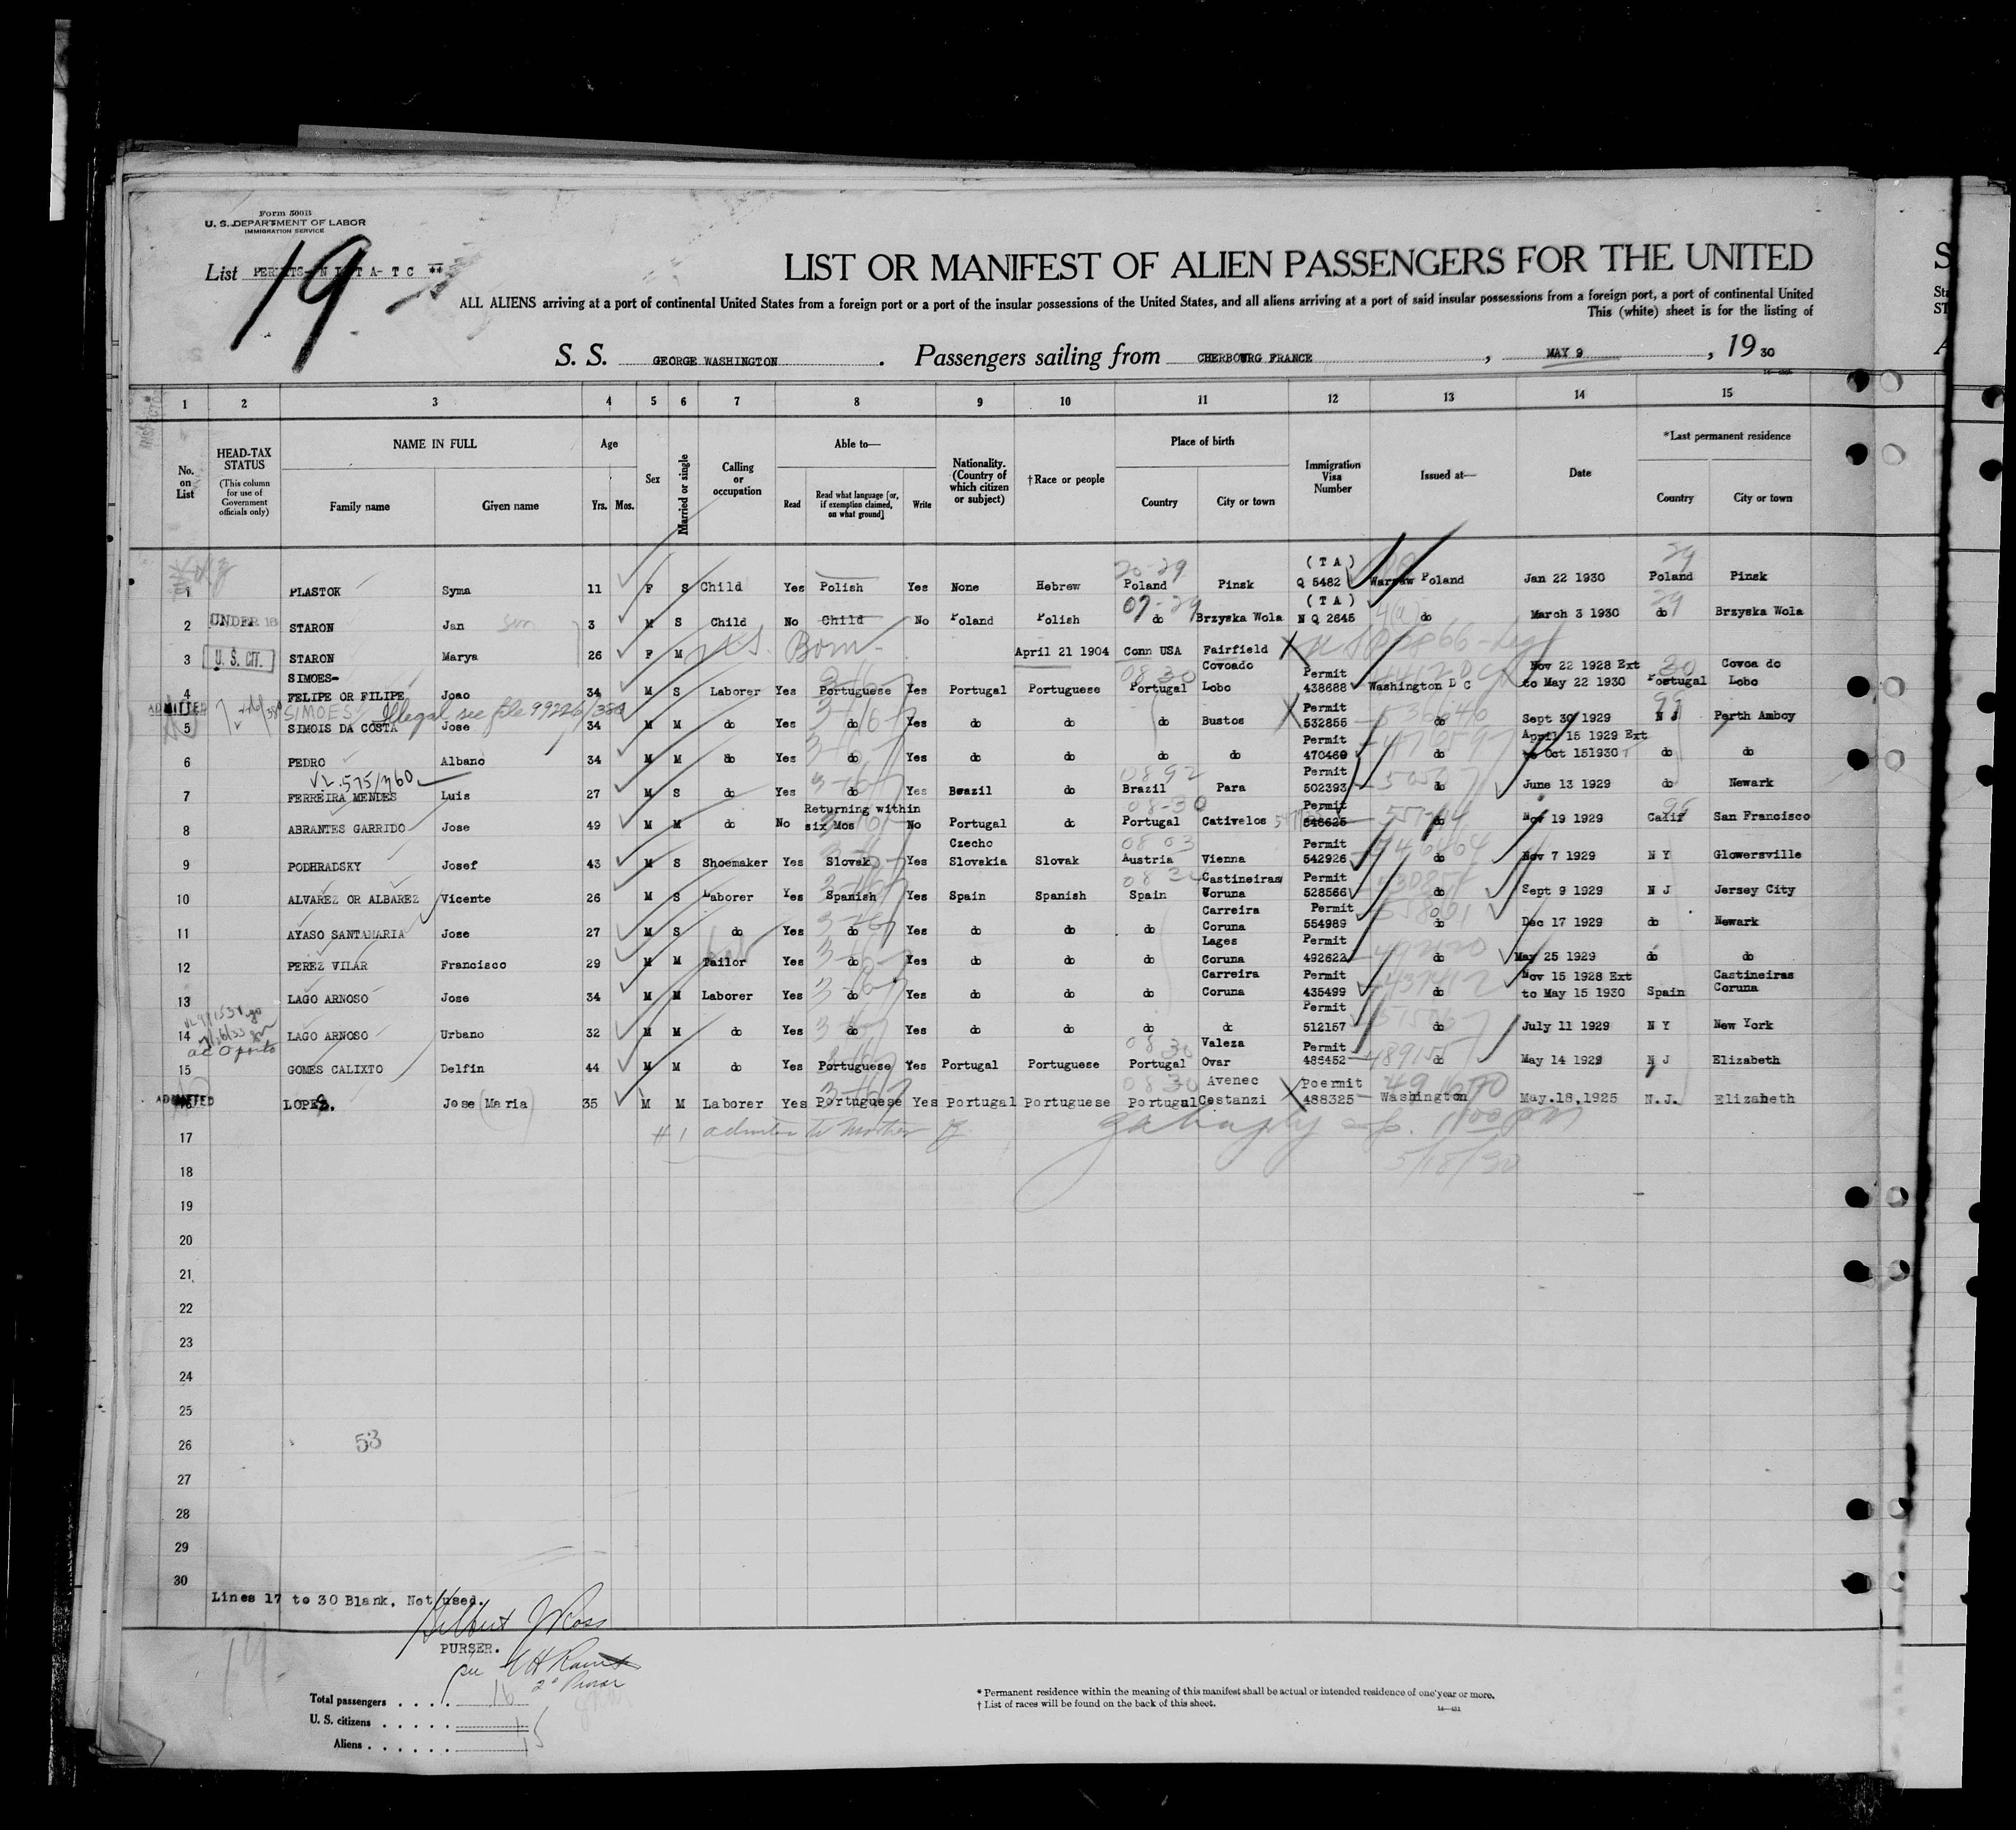 Form 500B
U. S. DEPARTMENT OF LABOR
IMMIGRATION SERVICE
List
19
LIST OR MANIFEST OF ALIEN PASSENGERS FOR THE UNITED
ALL ALIENS arriving at a port of continental United States from a foreign port or a port of the insular possessions of the United States, and all aliens arriving at a port of said insular possessions from a foreign port, a port of continental United
This (white) sheet is for the listing of
S. S. GEORGE WASHINGTON. Passengers sailing from CHERBOURG FRANCE, MAY 9, 19 30
1 2 3 4 5 6 7 8 9 10 11 12 13 14 15
No. on List
HEAD-TAX STATUS (This column for use of Government officials only)
NAME IN FULL Family name Given name
Age Yrs. Mos.
Sex
Married or single
Calling or occupation
Able to— Read Read what language [or, if exemption claimed, on what ground] Write
Nationality. (Country of which citizen or subject)
†Race or people
Place of birth Country City or town
Immigration Visa Number
Issued at—
Date
*Last permanent residence Country City or town
20-29 (TA) 29
1 PLASTOK Syma 11 F S Child Yes Polish Yes None Hebrew Poland Pinsk Q 5482 Warsaw Poland Jan 22 1930 Poland Pinsk
07-29 (TA) 29
2 UNDER 16 STARON Jan son 3 M S Child No Child No Poland Polish do Brzyska Wola N Q 2645 4(a) do March 3 1930 do Brzyska Wola
3 U. S. CIT. STARON Marya 26 F M U.S. Born April 21 1904 Conn USA Fairfield
SIMOES- 08 30 Covoado Permit Nov 22 1928 Ext 30 Covoa do
4 FELIPE OR FILIPE Joao 34 M S Laborer Yes Portuguese Yes Portugal Portuguese Portugal Lobo 438688 Washington D C to May 22 1930 Portugal Lobo
ADMITTED SIMOES Illegal see file 99226/380 Permit
5 SIMOIS DA COSTA Jose 34 M M do Yes do Yes do do do Bustos 532855 536640 do Sept 30 1929 N J Perth Amboy
Permit April 15 1929 Ext
6 PEDRO Albano 34 M M do Yes do Yes do do do do 470469 do to Oct 151930 do do
08 92 Permit
7 FERREIRA MENDES Luis 27 M S do Yes do Yes Brazil do Brazil Para 502393 do June 13 1929 do Newark
Returning within 08-30 Permit
8 ABRANTES GARRIDO Jose 49 M M do No six Mos No Portugal do Portugal Cativelos 546625 do Nov 19 1929 Calif San Francisco
Czecho 08 03 Permit
9 PODHRADSKY Josef 43 M S Shoemaker Yes Slovak Yes Slovakia Slovak Austria Vienna 542926 do Nov 7 1929 N Y Glowersville
Castineiras Permit
10 ALVAREZ OR ALBAREZ Vicente 26 M S Laborer Yes Spanish Yes Spain Spanish Spain Coruna 528566 do Sept 9 1929 N J Jersey City
Carreira Permit
11 AYASO SANTAMARIA Jose 27 M S do Yes do Yes do do do Coruna 554989 do Dec 17 1929 do Newark
Lages Permit
12 PEREZ VILAR Francisco 29 M M Tailor Yes do Yes do do do Coruna 492622 do May 25 1929 do do
Carreira Permit Nov 15 1928 Ext Castineiras
13 LAGO ARNOSO Jose 34 M M Laborer Yes do Yes do do do Coruna 435499 do to May 15 1930 Spain Coruna
Permit
14 LAGO ARNOSO Urbano 32 M M do Yes do Yes do do do do 512157 do July 11 1929 N Y New York
08 30 Valeza Permit
15 GOMES CALIXTO Delfin 44 M M do Yes Portuguese Yes Portugal Portuguese Portugal Ovar do May 14 1929 N J Elizabeth
ADMITTED 08 30 Avenec Poermit
16 LOPES. Jose (Maria) 35 M M Laborer Yes Portuguese Yes Portugal Portuguese Portugal Costanzi 488325 Washington May.18,1925 N.J. Elizabeth
17 #1 admitted to mother
5/18/30
18
19
20
21
22
23
24
25
26 53
27
28
29
30
Lines 17 to 30 Blank. Not used.
PURSER.
Total passengers . . . . 16
U. S. citizens . . . . . 1
Aliens . . . . . . 15
* Permanent residence within the meaning of this manifest shall be actual or intended residence of one year or more.
† List of races will be found on the back of this sheet.